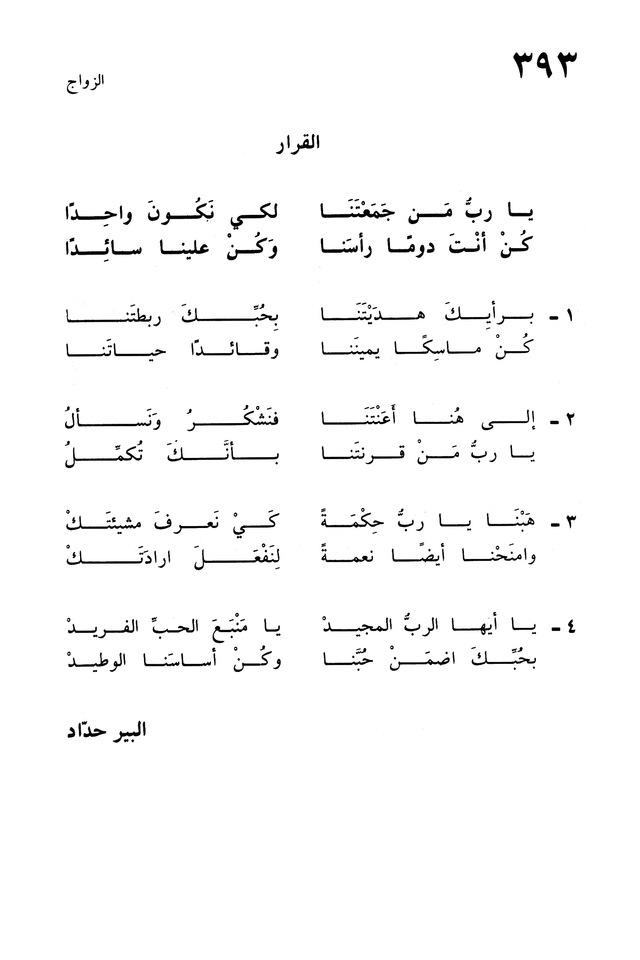 ٣٩٣
الزواج
القرار
يا ربُّ مَن جَمَعْتَنَا لكي نَكُونَ واحِدًا
كُنْ أنْتَ دومًا رأسَنا وَكُنْ علينا سائِدًا
١ - برأيِكَ هديْتَنَا بِحُبِّكَ ربطتَنا
كُنْ ماسِكًا يمينَنا وقائدًا حياتَنا
٢ - إلى هُنا أَعَنْتَنَا فنَشْكُرُ وَنَسألُ
يا ربُّ مَنْ قرنتَنا بأنَّكَ تُكمِّلُ
٣ - هَبْنَا يا ربُّ حِكْمَةً كَيْ نَعرفَ مشيئتَكْ
وامنَحْنا أيضًا نعمةً لِنَفْعَلَ ارادَتَكْ
٤ - يا أيها الربُّ المجيدْ يا مَنْبَعَ الحبِّ الفريدْ
بحُبِّكَ اضمَنْ حُبَّنا وكُنْ أساسَنا الوطيدْ
البير حدّاد